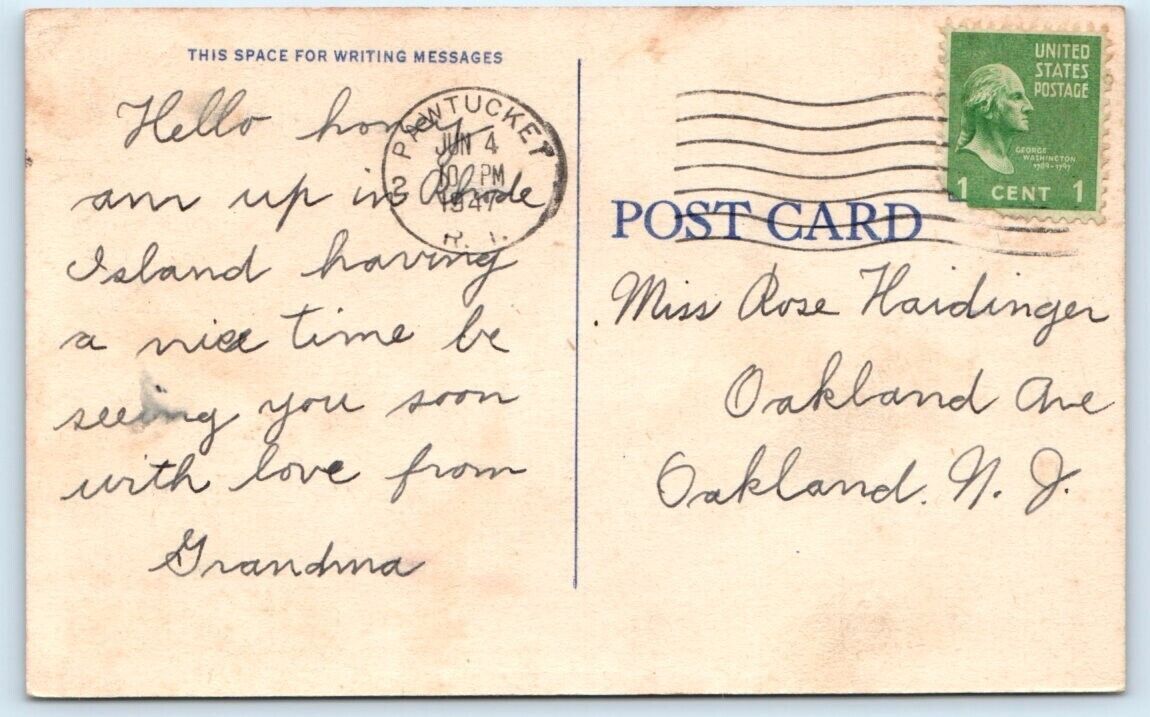 THIS SPACE FOR WRITING MESSAGES
Hello honey
am up in Rhode
Island having
a nice time be
seeing you soon
with love from
Grandma
PAWTUCKET
JUN 4
10 PM
1947
R. I.
2
UNITED
STATES
POSTAGE
GEORGE
WASHINGTON
1789-1797
1 CENT 1
POST CARD
Miss Rose Haidinger
Oakland Ave
Oakland. N. J.